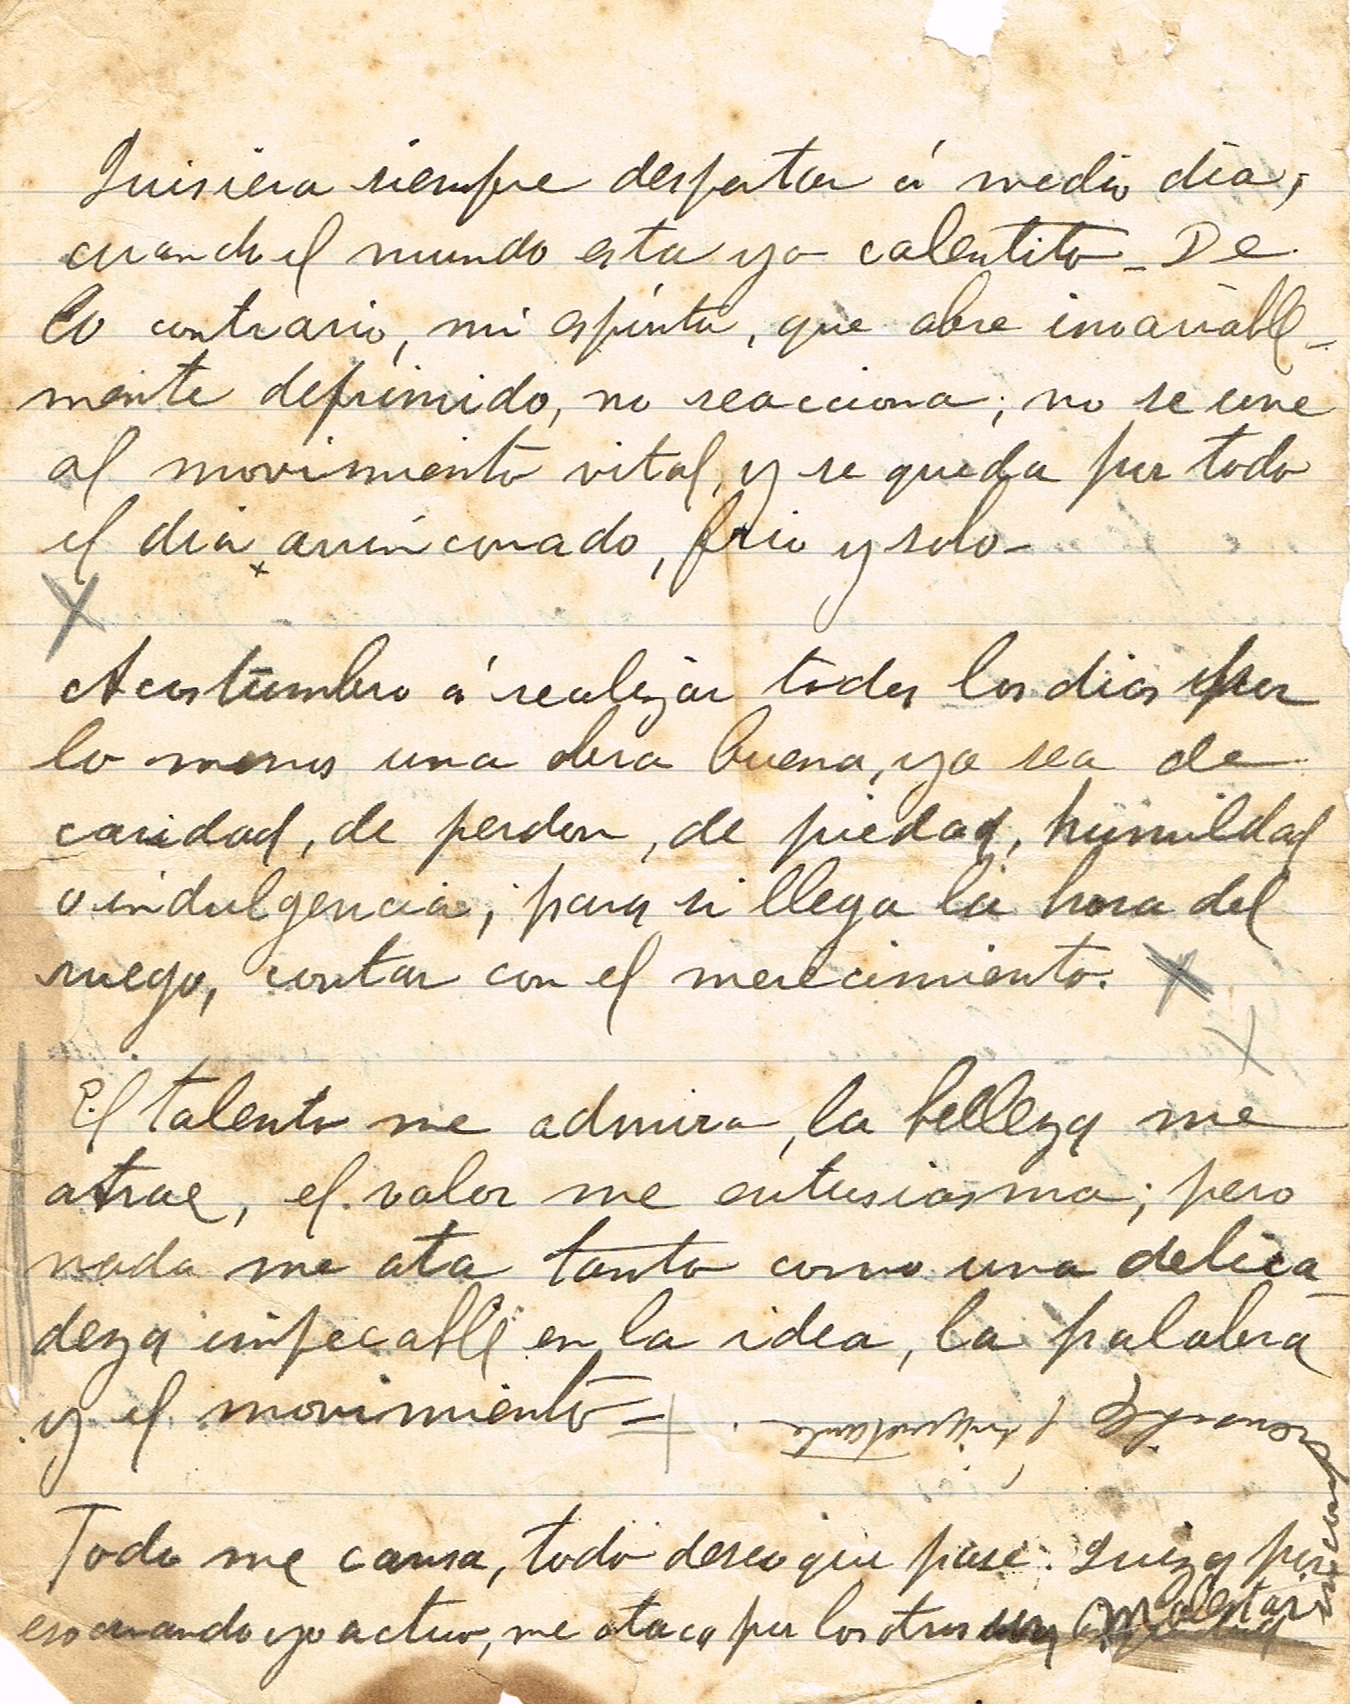 Quisiera siempre despertar á medio dia,
cuando el mundo esta ya calentito - De
lo contrario, mi espíritu, que abre invariable-
mente deprimido, no reacciona; no se une
al movimiento vital, y se queda por todo
el dia arrinconado, frio y solo -
Acostumbro á realizar todos los dias por
lo menos una obra buena, ya sea de
caridad, de perdon, de piedad, humildad
o indulgencia; para si llega la hora del
ruego, contar con el merecimiento.
El talento me admira, la belleza me
atrae, el valor me entusiasma; pero
nada me ata tanto como una delica-
deza impecable en la idea, la palabra
y el movimiento -
Todo me cansa, todo deseo que pase. Quiza por
eso cuando yo actuo, me ataca por los otros malestar